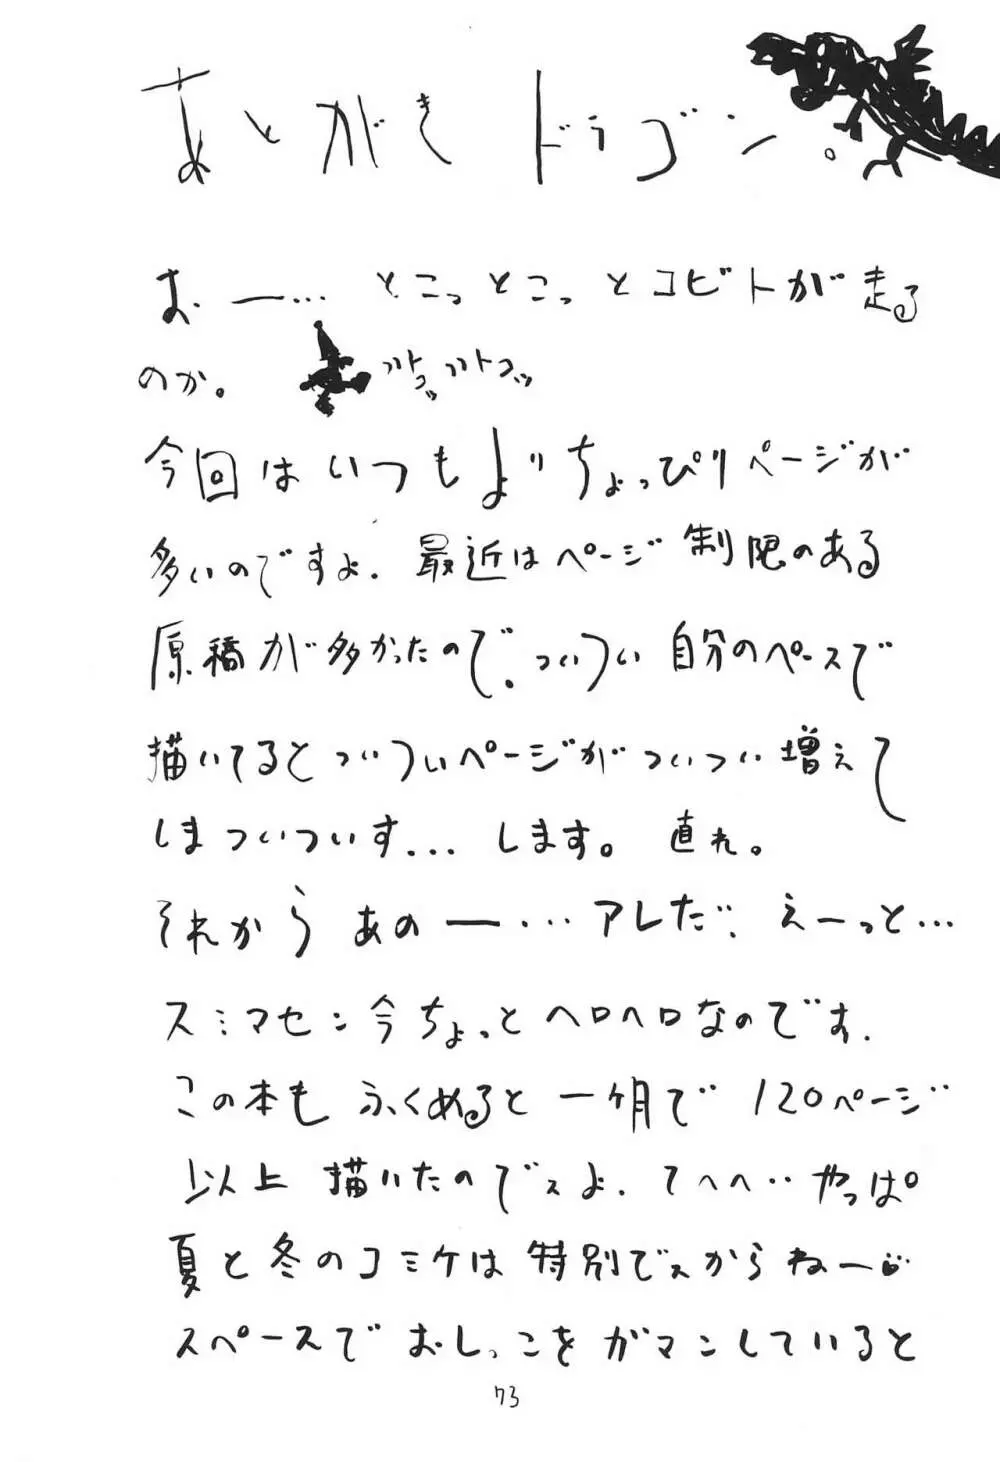 あとがきドラゴン。
おー… とこっとこっとコビトが走る
のか。 トコッ トコッ
今回はいつもよりちょっぴりページが
多いのですよ。最近はページ制限のある
原稿が多かったので、ついつい自分のペースで
描いてるとついついページがついつい増えて
しまついついす… します。直れ。
それからあのー… アレだ… えーっと…
スミマセン今ちょっとヘロヘロなのです。
この本もふくめると一ヶ月で120ページ
以上描いたのでスよ。てへへ… やっぱ
夏と冬のコミケは特別でスからねー
スペースでおしっこをガマンしていると
73